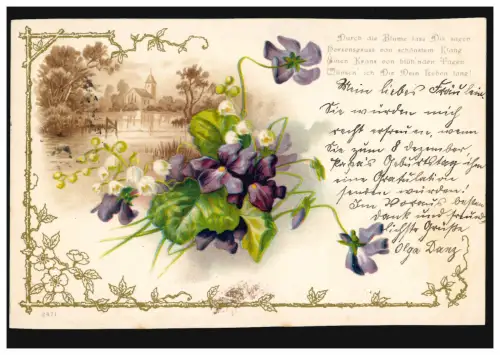 Durch die Blume lass Dir sagen
Herzensgruss von schönstem Klang
Einen Kranz von blüh'nden Tagen
Wünsch ich Dir Dein Leben lang!
Mein liebes Fräulein.
Sie würden mich
recht erfreuen, wenn
Sie zum 8 Dezember
Papa's Geburtstag ihm
eine Gratulation
senden würden!
Im Voraus besten
dank und freund
lichste Grüße
Olga Danz